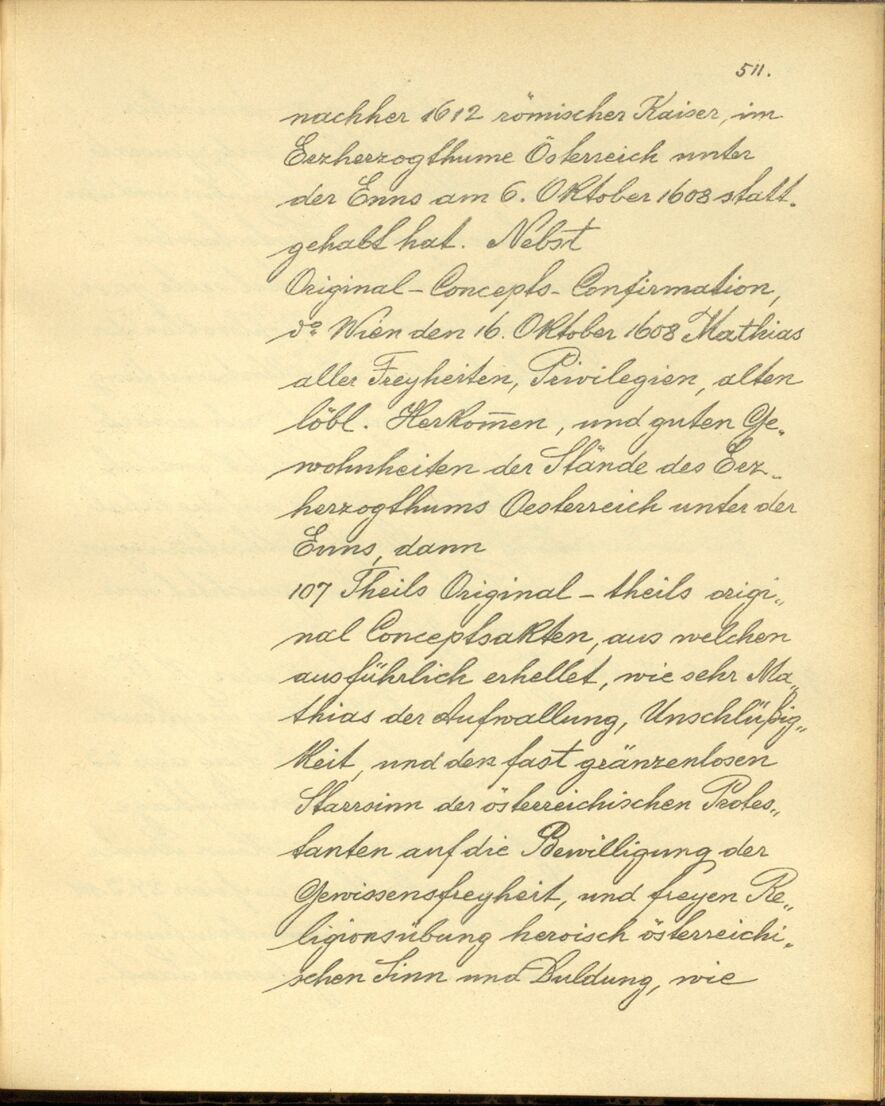 511.
nachher 1612 römischer Kaiser, im
Erzherzogthume Österreich unter
der Enns am 6. Oktober 1608 statt-
gehabt hat. Nebst
Original-Concepts-Confirmation,
do Wien den 16. Oktober 1608 Mathias
aller Freyheiten, Privilegien, alten
löbl. Herkom̅en, und guten Ge-
wohnheiten der Stände des Erz-
herzogthums Oesterreich unter der
Enns, dann
107 Theils Original - theils origi„
nal Conceptsakten, aus welchen
ausführlich erhellet, wie sehr Ma„
thias der Aufwallung, Unschlüßig„
keit, und den fast gränzenlosen
Starrsinn der österreichischen Protes„
tanten auf die Bewilligung der
Gewissensfreyheit, und freyen Re„
ligionsübung heroisch österreichi„
schen Sinn und Duldung, wie